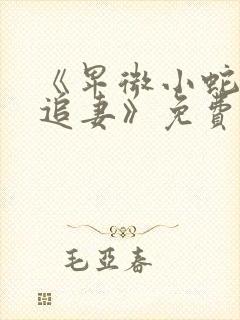 《卑微小蛇
追妻》免費
毛亞春